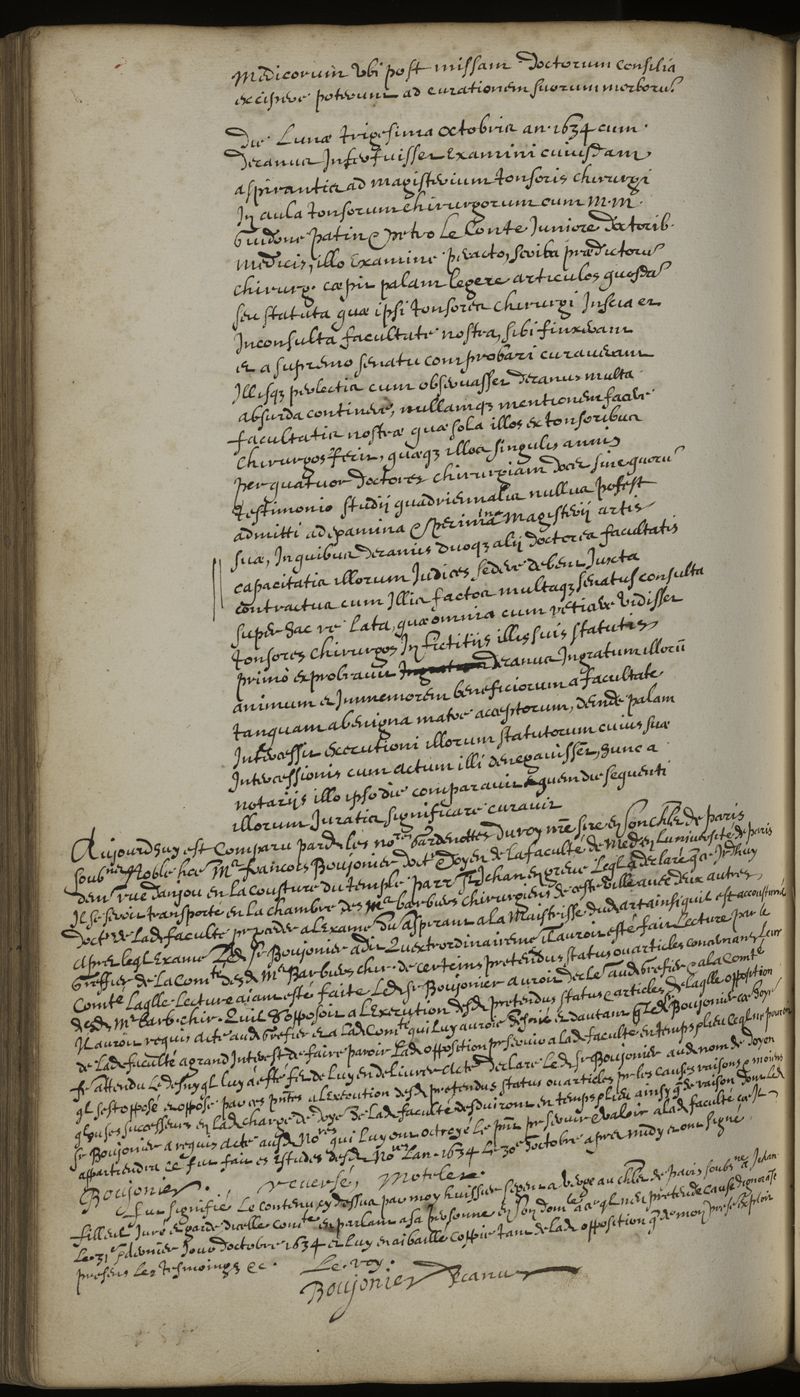 Medicorum ubi post missam doctorum consilia
excipere poterunt ad curationem suorum morborū.
Die Lunæ trigesima octobris an. 1634 cum
decanus Interfuisset Examini cuiusdam
aspirantis ad magisterium tonsoris chirurgi
In aula tonsorum chirurgorum cum M. M.
Guidone patin & petro Le Conte Juniore doctorib.
medicis, illo Examine peracto, scriba prædictorū
chirurg. cœpit palam legere articulos quosdā
seu statuta quæ ipsi tonsores chirurgi Inscia et
Inconsulta facultate nostra, sibi finxerant
et a supremo senatu comprobari curaverant
Illisq; perlectis cum observasset decanus multa
absurda contineri, nullamq; mentionem facere
facultatis nostræ quæ sola illos ex tonsoribus
chirurgos fecit, quæq; illos singulis annis
per quatuor doctores chirurgiam docet sine quorū
testimonio studii quadriennalis nullus potest
admitti ad examina & experimēta magisterii artis
suæ, In quibus decanus duoq; alii doctores facultatis
capacitatis illorum Judices sedere debent Juxta
contractus cum Illis factos multaq; senatus consulta
super hac re lata, quæ omnia cum reticere vidisset
tonsores chirurgos In fictitiis illis suis statutis
primo exprobravit decanus Ingratum illorū
animum et Immemorem beneficiorum a facultate
tanquam a benigna matre acceptorum, deinde palam
Intercessit executioni illorum statutorum cuius suæ
Intercessionis cum actum illi denegavissent, hunc a
notariis illo ipso die comparavit quem die sequenti
illorum Juratis significare curavit
Aujourdhuy est Comparu pardt les nores gardenottes du roy nre sire en son chlet de paris
soubnez Noble hōe Me francois Boujonier doctr Doyen de La faculté de Medne en Luniversité de paris
demt rue danjou en La cousture du temple parr St Jehan en greve Leql a declaré que Jourdhuy
Il se seroit transporté en la chambre des Mes barbiers chirurgiens de ceste ville avec deux autres
docteurs de Lad faculté pr proceder a Lexamen dun aspirant a la Maistrisse dud art ainsi quil est accoustumé
apres leql Examen Led sr Boujonier a dit Quextrordinairement Il auroit esté fait Lecture par le
Greffier de La Comté desd Mes Barbiers chir. de certeins pretendus status ou articles concernans leur
Comté Laqlle Lecture aiant esté faite Led sr Boujonier auroit declaré aud Grefier & a la Comté
desd Mes Barb. chir. Quil sopposoit a Lexecution desd pretendus status & articles de laqlle opposition
Il auroit requis acte aud Grefier et a Lad Comté qui Luy auroit desnié et dautant q Led sr Boujonier
de Lad faculté a grand Interest de faire paroir Lad opposition pr servir a lad faculté en temps & lieu
attendu Led desny ql luy a esté fet de luy en delivrer acte declare Led sr Boujonier aud nom de doyen
ql sest opposé et oppose par ces pntes a Lexecution desd pretendus status ou articles pr les causes raisons & moiens
q luy & ses successeurs en La charge de doyen de Lad faculté desduiront en temps & lieu ainsy q de raison
sr Boujonier a requis acte ausd Nores qui Luy ont octroyé Le pnt pr servir & valoir a lad faculté ce
appartiendra ce fut fait es Estudes desd Nores Lan 1634 Le 30e doctobre apres midy & ont signé
Boujonier. reversé, Motelet.
fut signifié Le contenu cy dessus par moy huissier sergent a verge au chlet de paris soubné a Jehan
filleul Juré & garde dicelle comté en parlant a sa personne en son domle a ce ql nen pretende cause dignorance
Le 31 & dernier Jour doctobre 1634 et Luy en ai baillé coppie tant de lad opposition q de mon pnt exploit
presens Les tesmoings &c. Le roy.
Boujonier Decanus